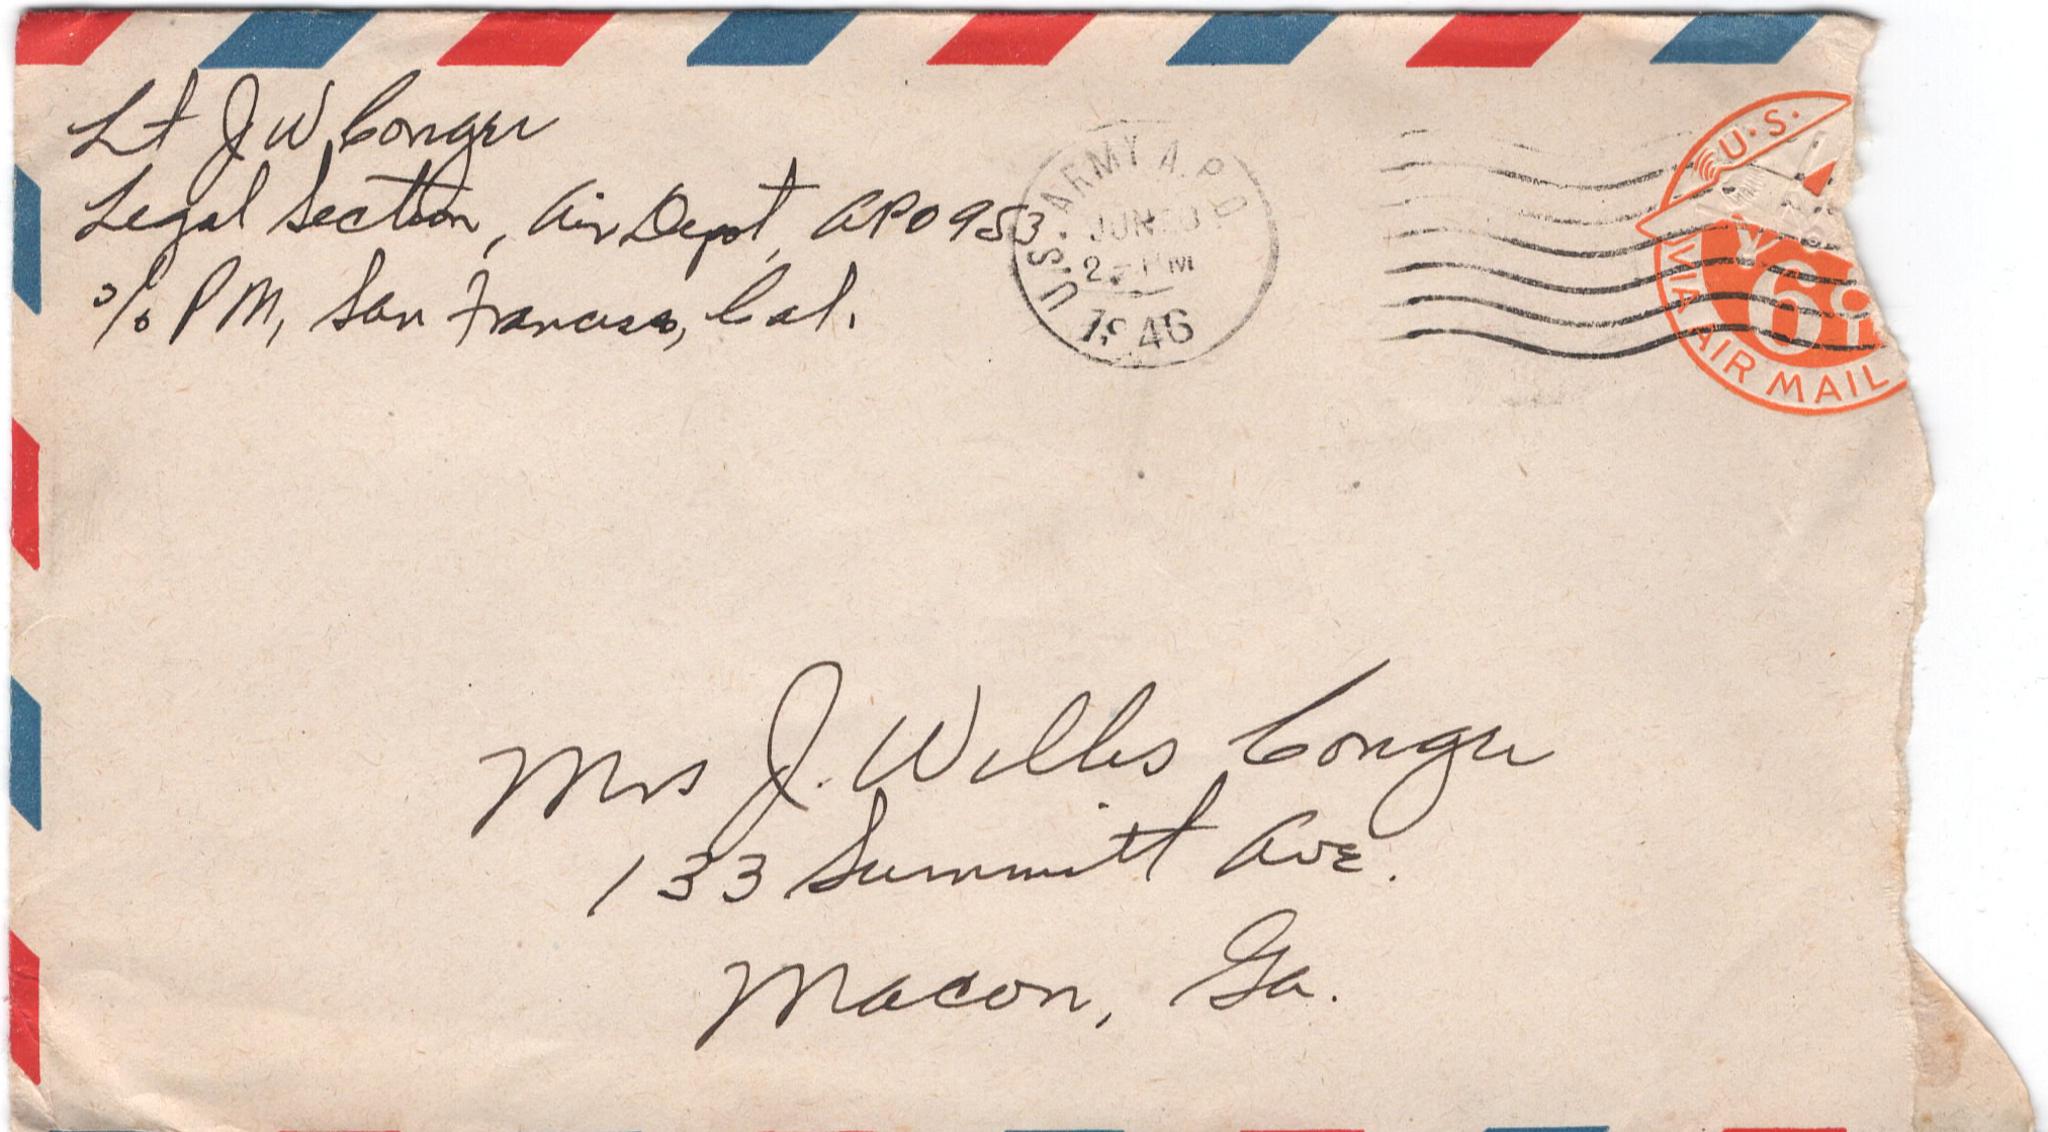 Lt J W Conger
Legal Section, Air Depot, APO 953
c/o PM, San Francisco, Cal.
U.S. ARMY A.P.O
JUN
2 PM
1946
U.S.
6¢
VIA AIR MAIL
Mrs J. Willis Conger
133 Summitt Ave.
Macon, Ga.